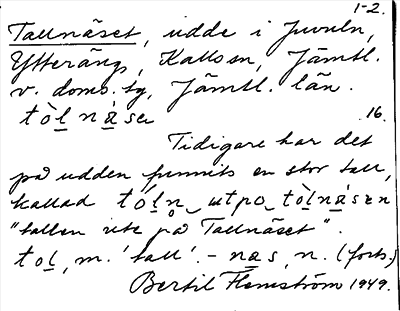 1-2.
Tallnäset, udde i Juvuln,
Ytteräng, Kallsen, Jämtl.
v. doms. tg, Jämtl. län.
tòl nà sen 16.
Tidigare har det
på udden funnits en stor tall,
kallad tóln utpo tòlnàsen
"tallen ute på Tallnäset".
tol, m. 'tall'. - nas, n. (forts.)
Bertil Flemström 1949.